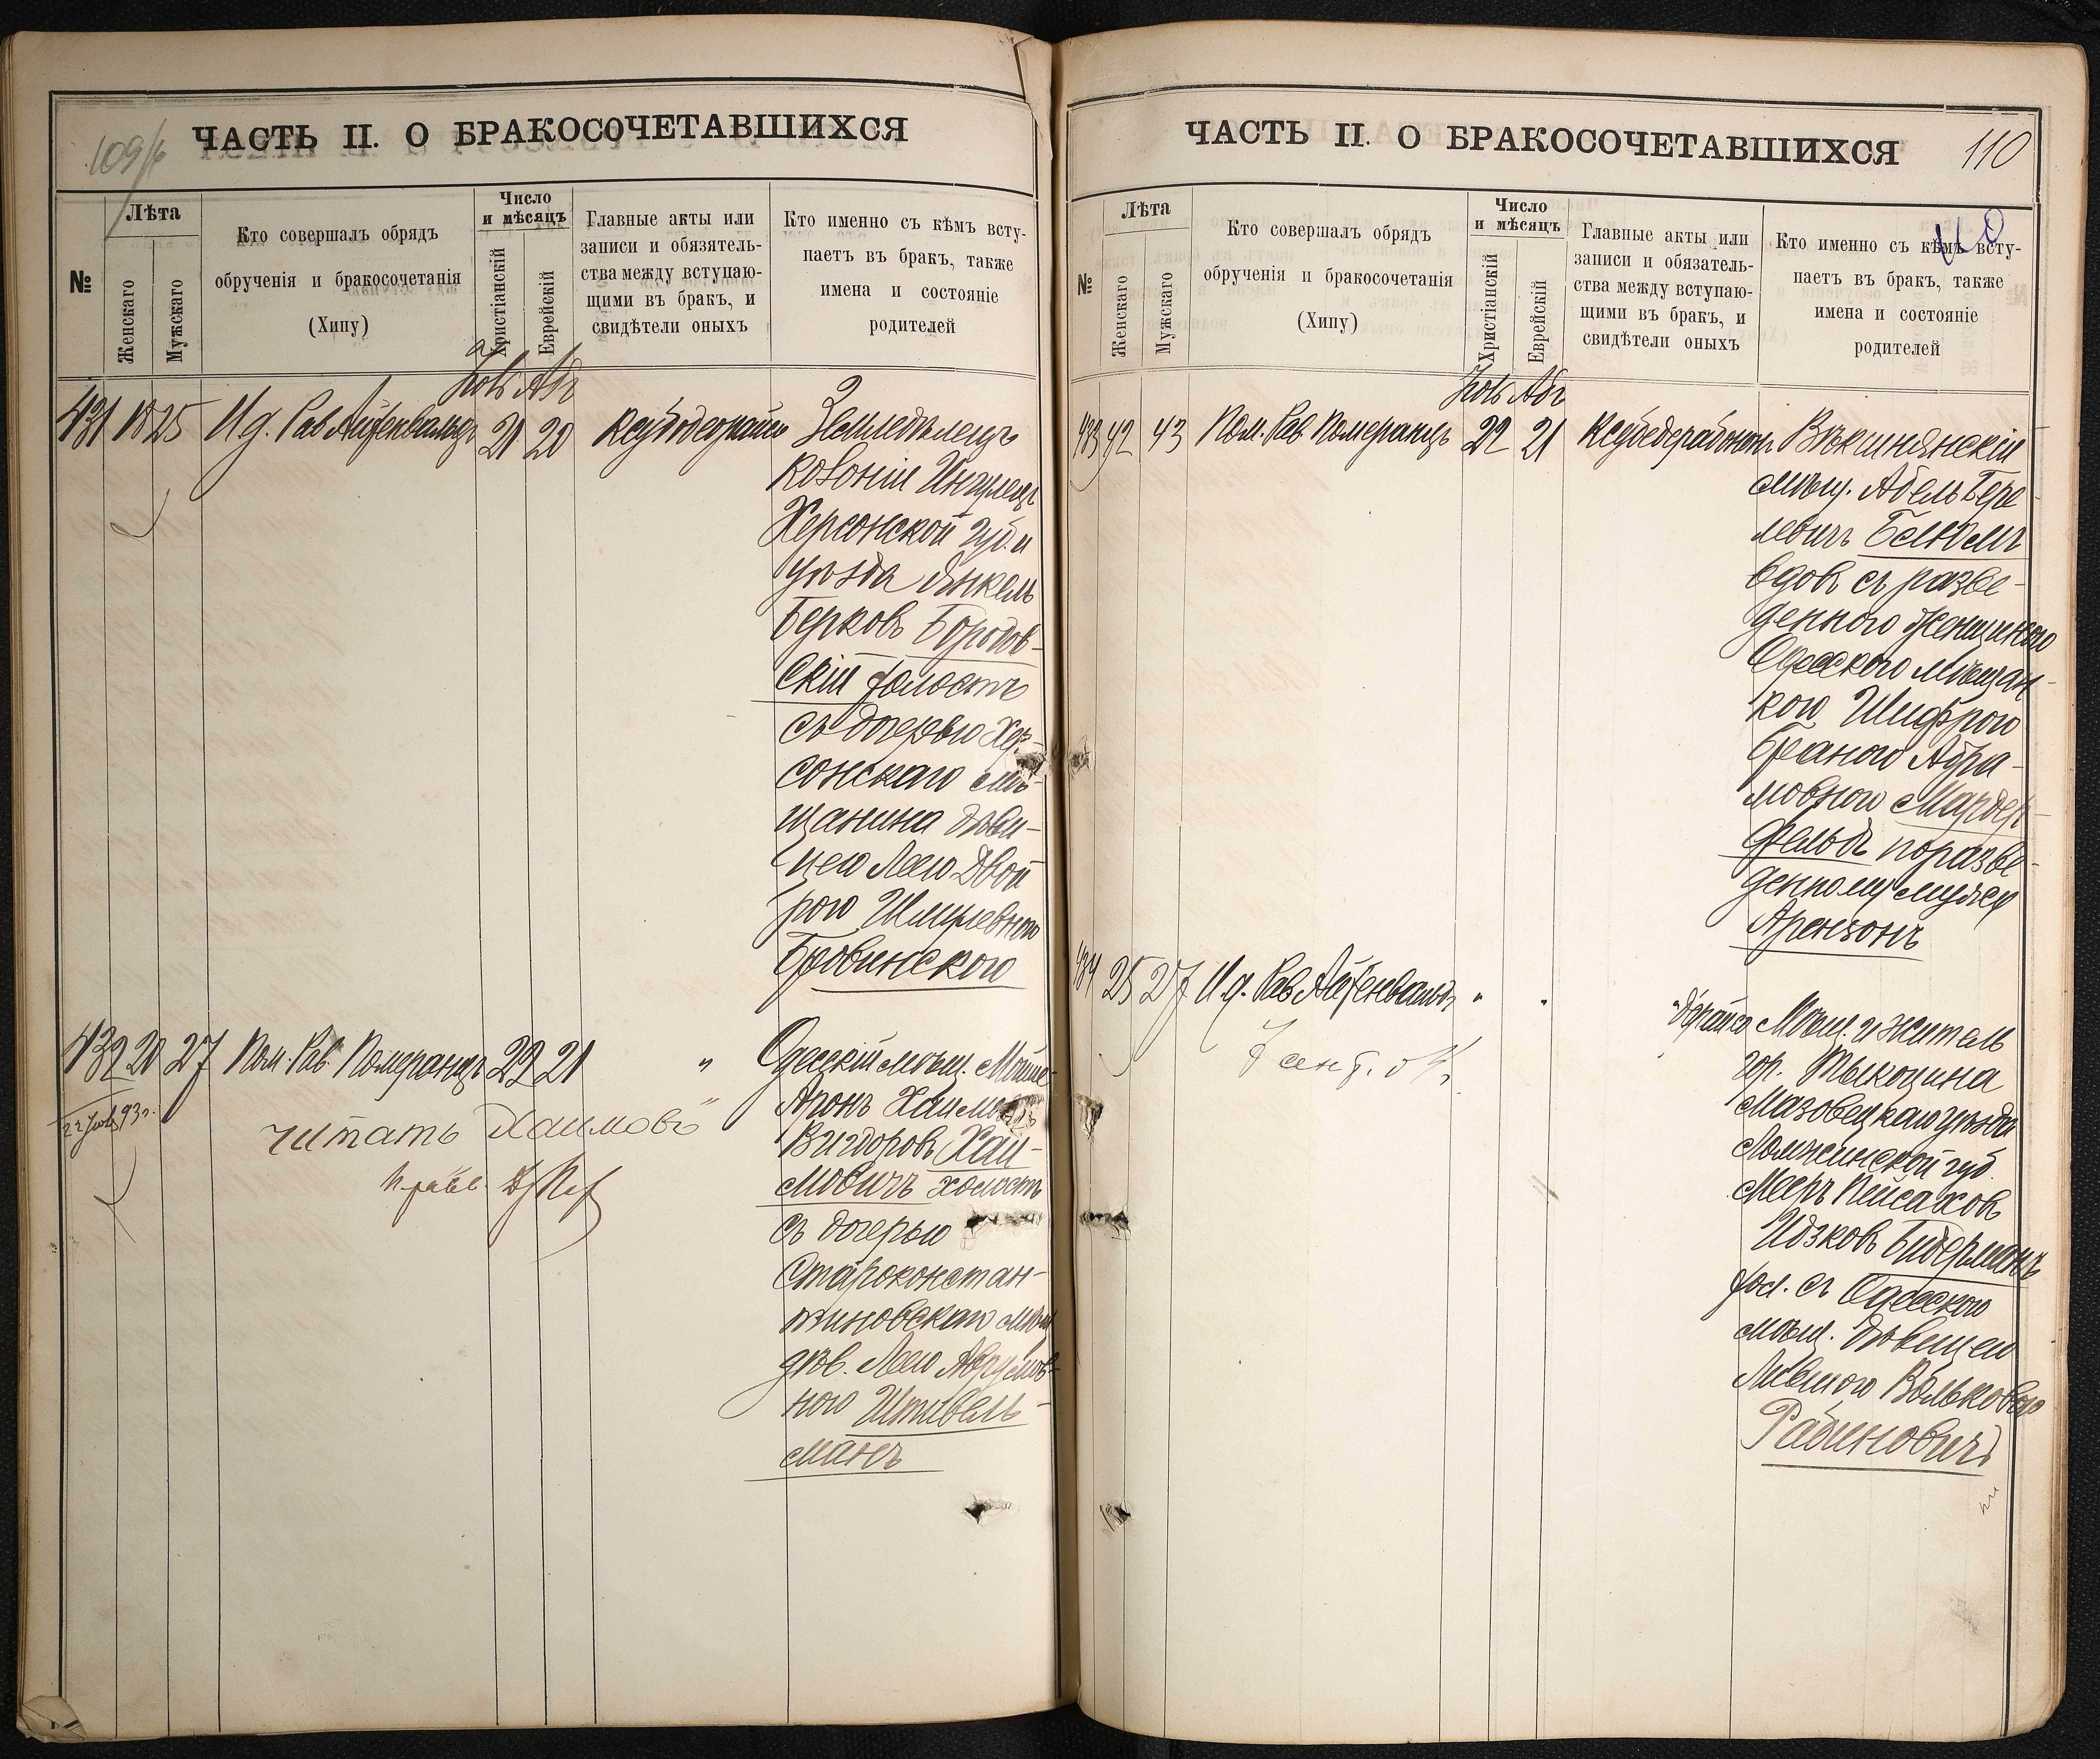 109/б
ЧАСТЬ II. О БРАКОСОЧЕТАВШИХСЯ
№
Лѣта
Женскаго
Мужскаго
Кто совершалъ обрядъ
обрученія и бракосочетанія
(Хипу)
Число
и мѣсяцъ
Христіанскій
Еврейскій
Главные акты или
записи и обязатель-
ства между вступаю-
щими въ бракъ, и
свидѣтели оныхъ
Кто именно съ кѣмъ всту-
паетъ въ бракъ, также
имена и состояніе
родителей
431 18 25 И.д. Рав Айзенвальдъ 21 20
Земледѣлецъ
колоніи Ингулецъ
Херсонской губ. и
уѣзда Янкель
Берковъ Бородов-
скій холостъ
съ дочерью Хер-
сонскаго мѣ-
щанина дѣви-
цею Леею Двой
рою Шмулевною
Бровинскою
432 20 27 Пом. Рав. Померанцъ 22 21 "
Одесскій мѣщ. Мойше-
Аронъ Хаимовъ
Вигдоровъ Хаи-
мовичъ холостъ
съ дочерью
Староконстан-
тиновскаго мѣщ
дѣв. Леею Аврумов-
ною Штивель-
манъ
читать Хаимовъ"
ЧАСТЬ II. О БРАКОСОЧЕТАВШИХСЯ
110
110
№
Лѣта
Женскаго
Мужскаго
Кто совершалъ обрядъ
обрученія и бракосочетанія
(Хипу)
Число
и мѣсяцъ
Христіанскій
Еврейскій
Главные акты или
записи и обязатель-
ства между вступаю-
щими въ бракъ, и
свидѣтели оныхъ
Кто именно съ кѣмъ всту-
паетъ въ бракъ, также
имена и состояніе
родителей
433 42 43 Пом. Рав. Померанцъ 22 21
Векшнянскій
мѣщ. Абель Бере
левичъ Блюмъ
вдов. съ разве-
денною женщиною
Одесскою мѣщан-
кою Шифрою
Бейною Абра-
мовною Мардер-
фельдъ по разве-
денному мужу
Арензонъ
434 25 27 И.д. Рав Айзенвальдъ " "
Мѣщ. и житель
гор. Тыкоцина
Мазовецкаго уѣзда
Ломжинской губ.
Мееръ Пейсахов
Идзковъ Бидерманъ
хол. съ Одесскою
мѣщ. дѣвицею
Ривкою Вольковою
Рабиновичъ